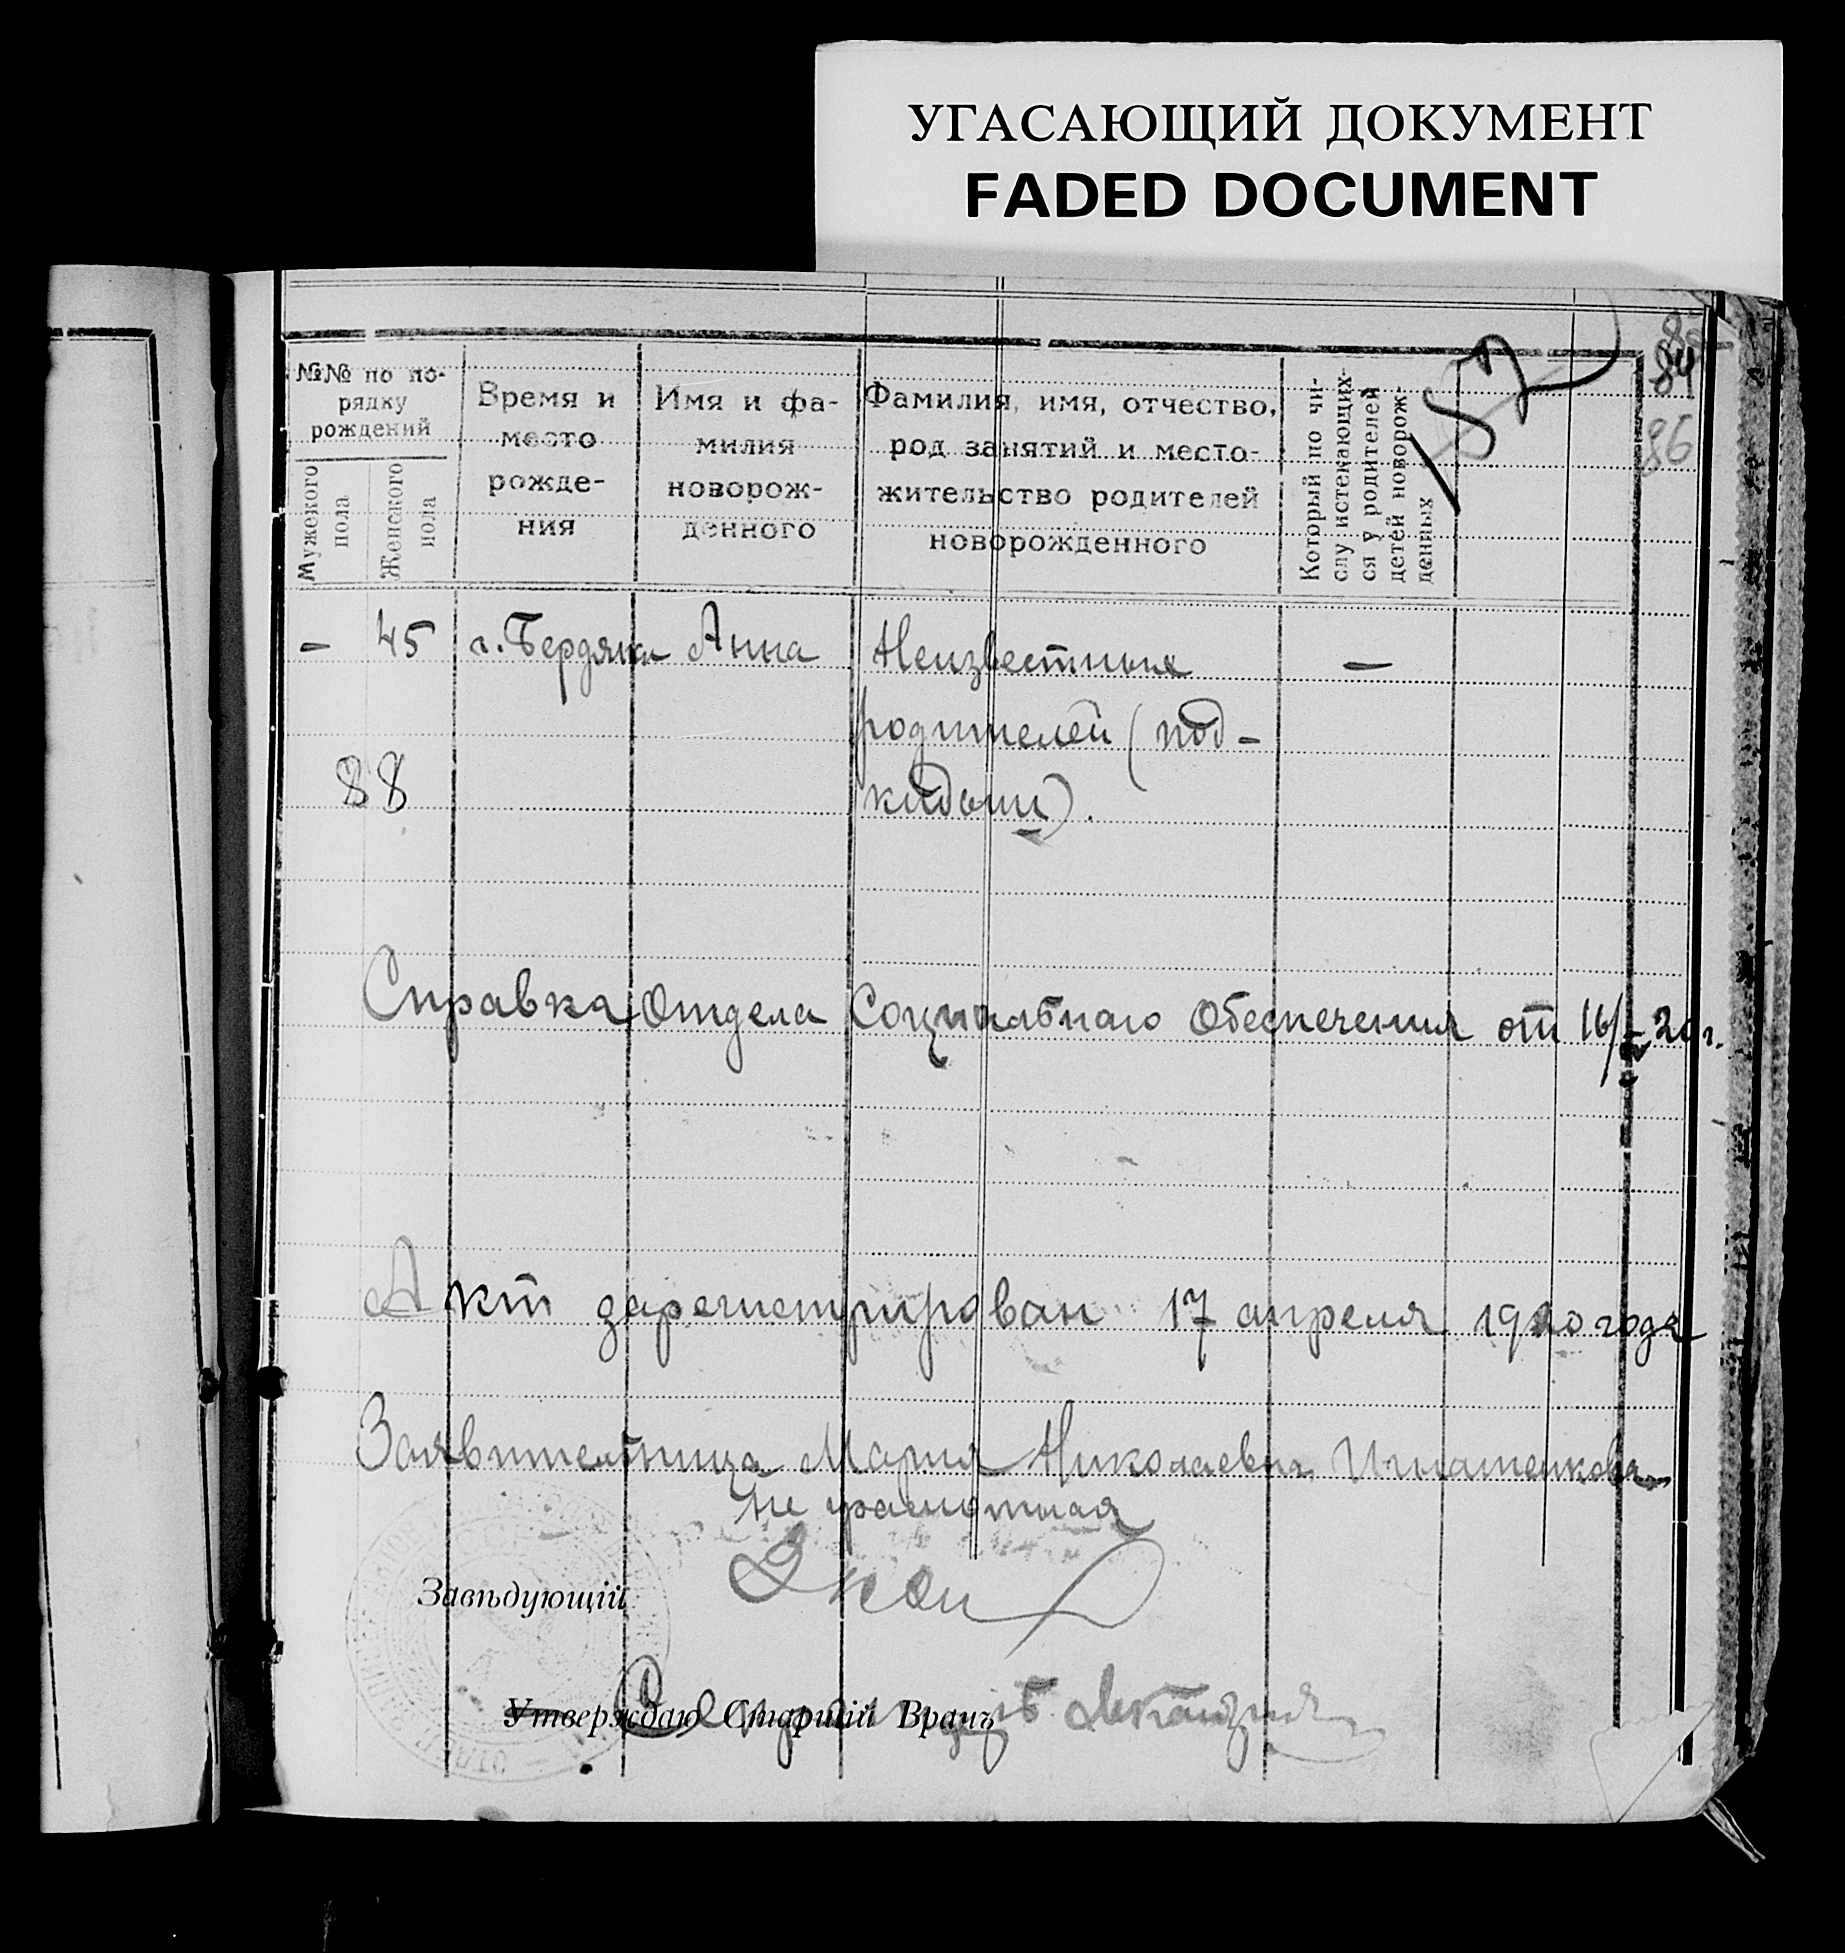 УГАСАЮЩИЙ ДОКУМЕНТ
FADED DOCUMENT
84
86
№№ по по-
рядку
рождений
Мужского
пола
Женского
пола
Время и
место
рожде-
ния
Имя и фа-
милия
новорож-
денного
Фамилия, имя, отчество,
род занятий и место-
жительство родителей
новорожденного
Который по чи-
слу истекающих-
ся у родителей
детей новорож-
денных
— 45 г. Бердянск Анна Неизвестных —
родителей (под-
кидыш).
88
Справка Отдела Социального Обеспечения от 16/ 20 г.
Акт зарегистрирован 17 апреля 1920 года
Заявительница Мария Николаевна Игнатенкова
Не грамотная
Завѣдующій
Утверждаю Старшій Врачъ